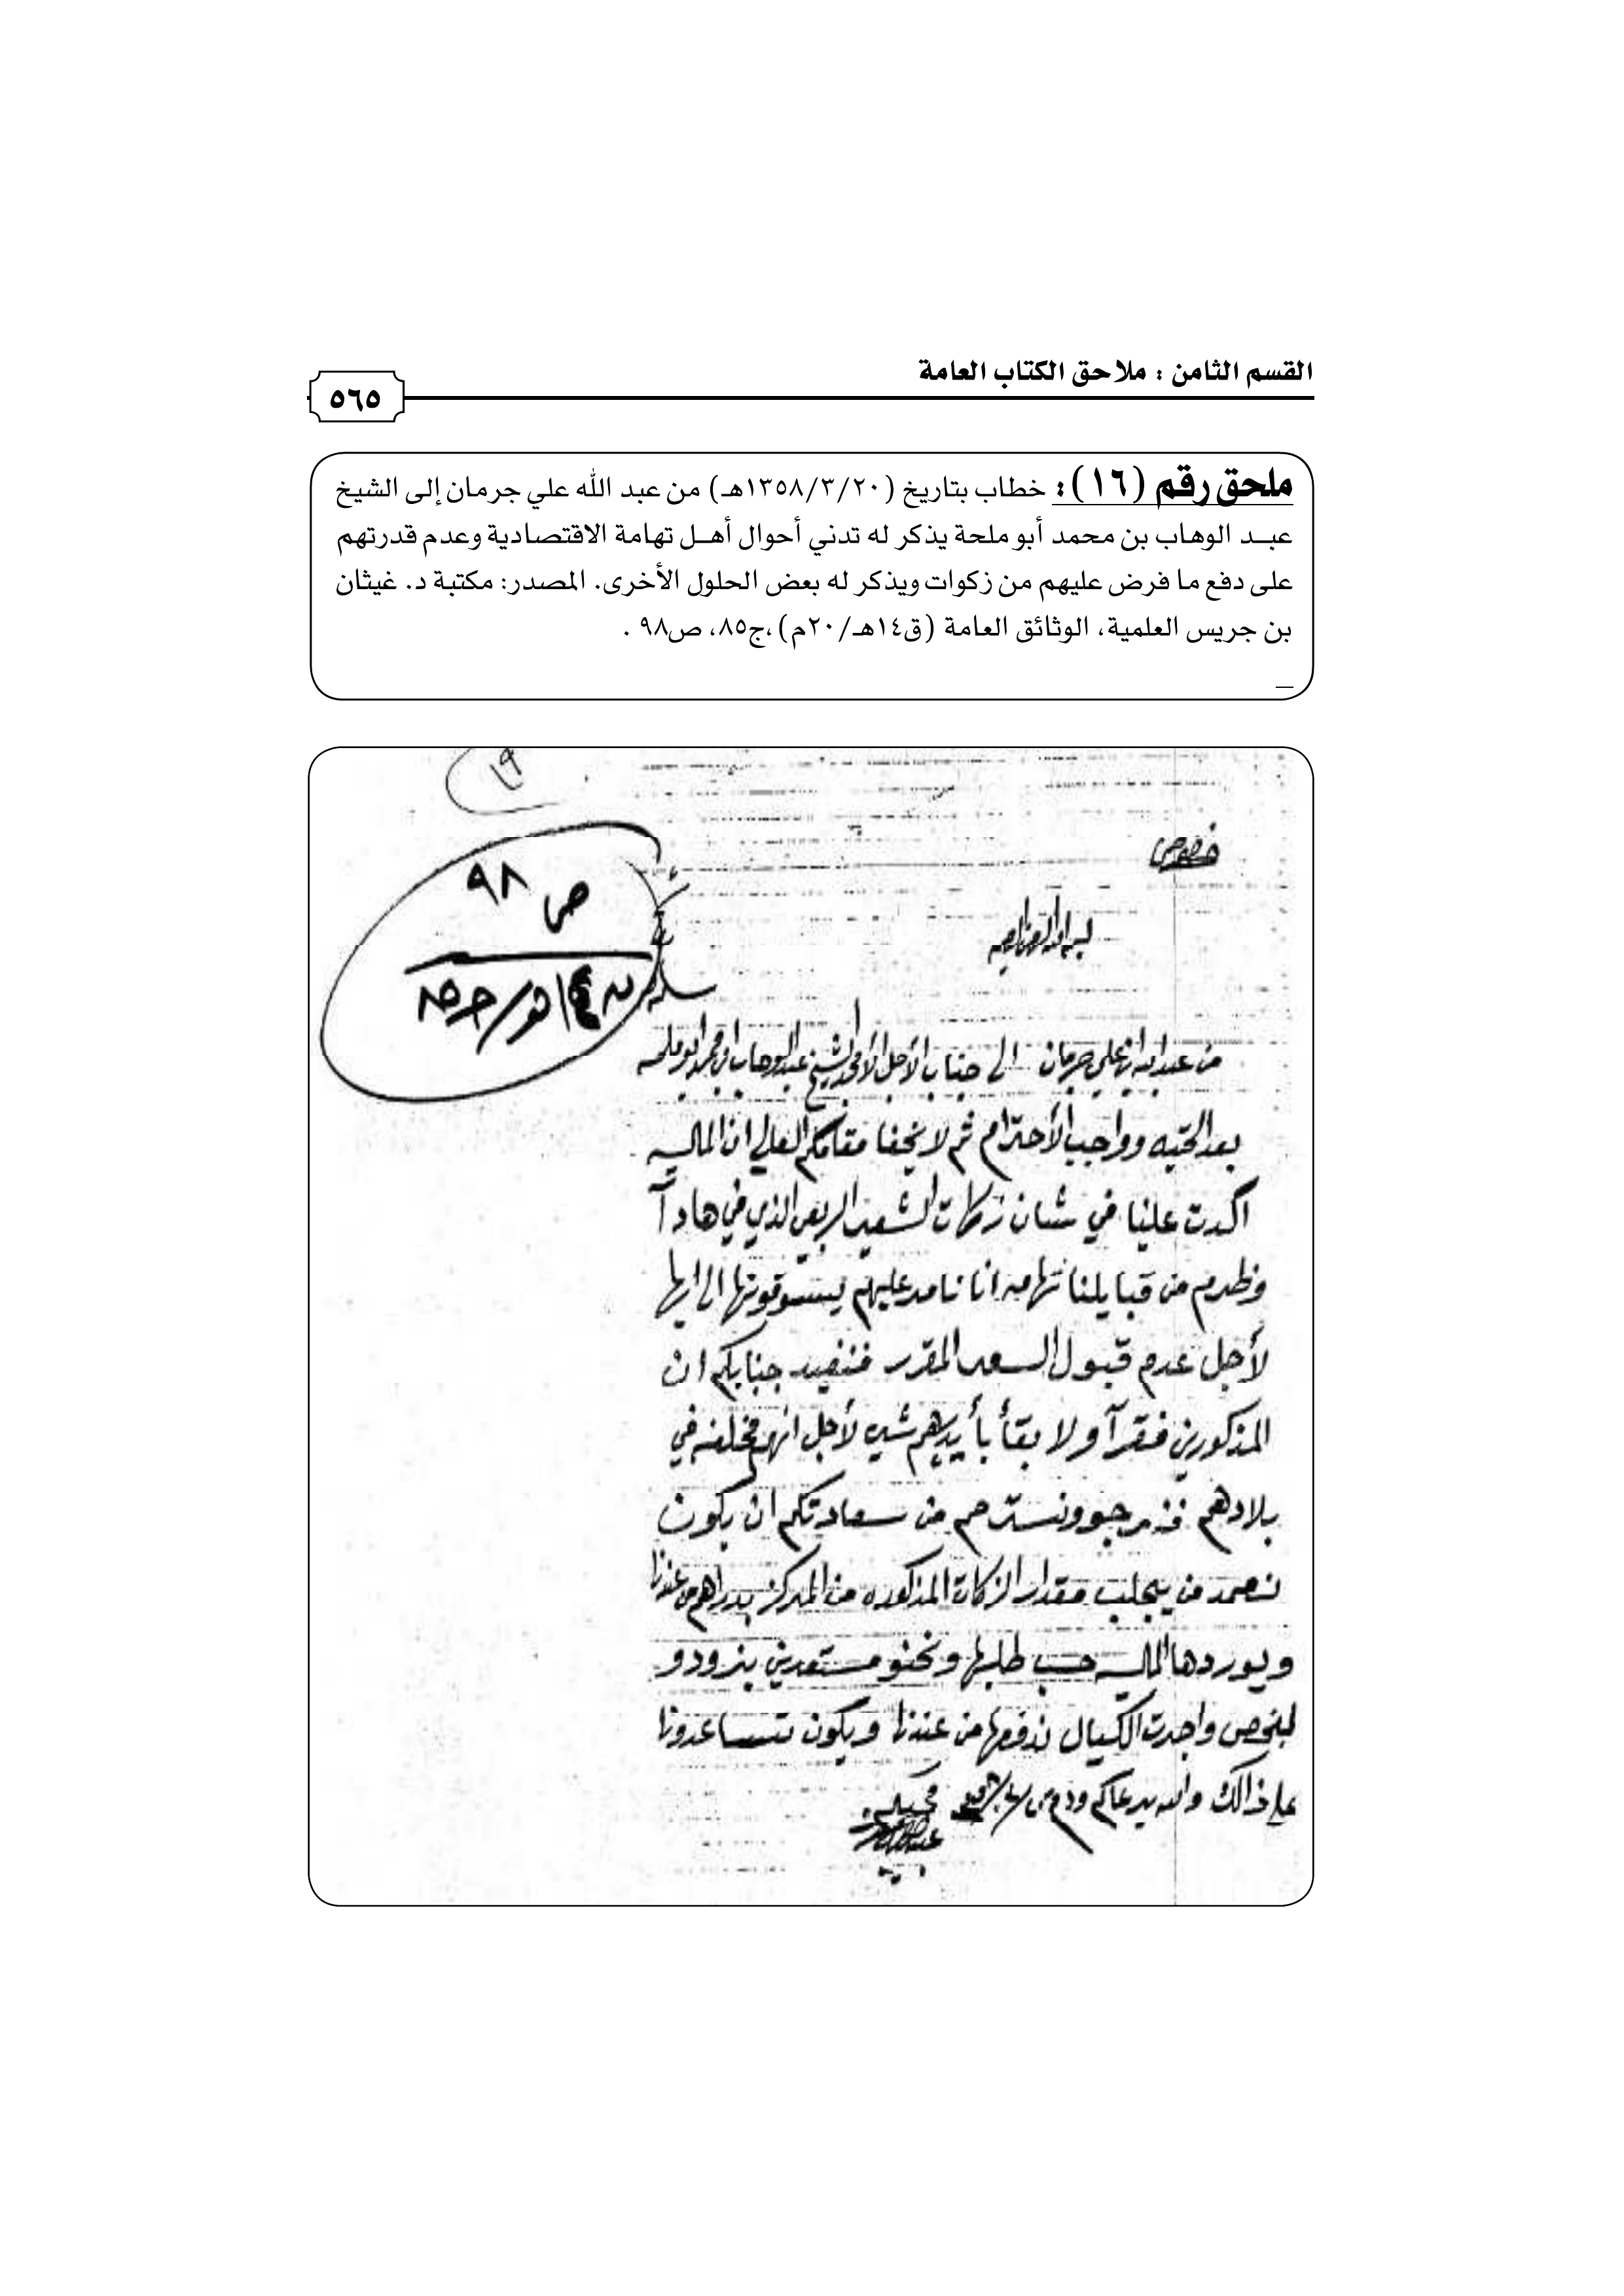 القسم الثامن : ملاحق الكتاب العامة
٥٦٥
ملحق رقم (١٦): خطاب بتاريخ (١٣٥٨/٣/٢٠هـ) من عبد الله علي جرمان إلى الشيخ
عبــد الوهاب بن محمد أبو ملحة يذكر له تدني أحوال أهــل تهامة الاقتصادية وعدم قدرتهم
على دفع ما فرض عليهم من زكوات ويذكر له بعض الحلول الأخرى. المصدر: مكتبة د. غيثان
بن جريس العلمية، الوثائق العامة (ق١٤هـ/٢٠م)،ج٨٥، ص٩٨ .
١٩
خصوصي
ص ٩٨
ق ١٤هـ/ ج٨٥
من عبدالله بن علي جرمان الى جناب الأجل الأمجد الشيخ عبدالوهاب ابن محمد ابو ملحه
بعد التحيه وواجب الأحترام ثم لا يخفا مقامكم العالي ان الماليه
اكدت علينا في شان زكات الشعير الذي في هاد آ
من قبايلنا تهامه انا نامر عليهم يسوقونها الى ابها
لأجل عدم قبول السعر المقرر فنفيد جنابكم ان
المذكورين فقرآ ولا بقأ بأيديهم شي لأجل انهم مخلفه في
بلادهم فنرجو ونسترحم من سعادتكم ان يكون
نعمد من يجلب مقدار الزكات المذكوره من المركز بدراهم من عندنا
ويوردها الماليه حسب طلبها ونحنو مستعدين
واجرت الكيال ندفعها من عندنا ويكون تساعدونا
على ذالك والله يرعاكم